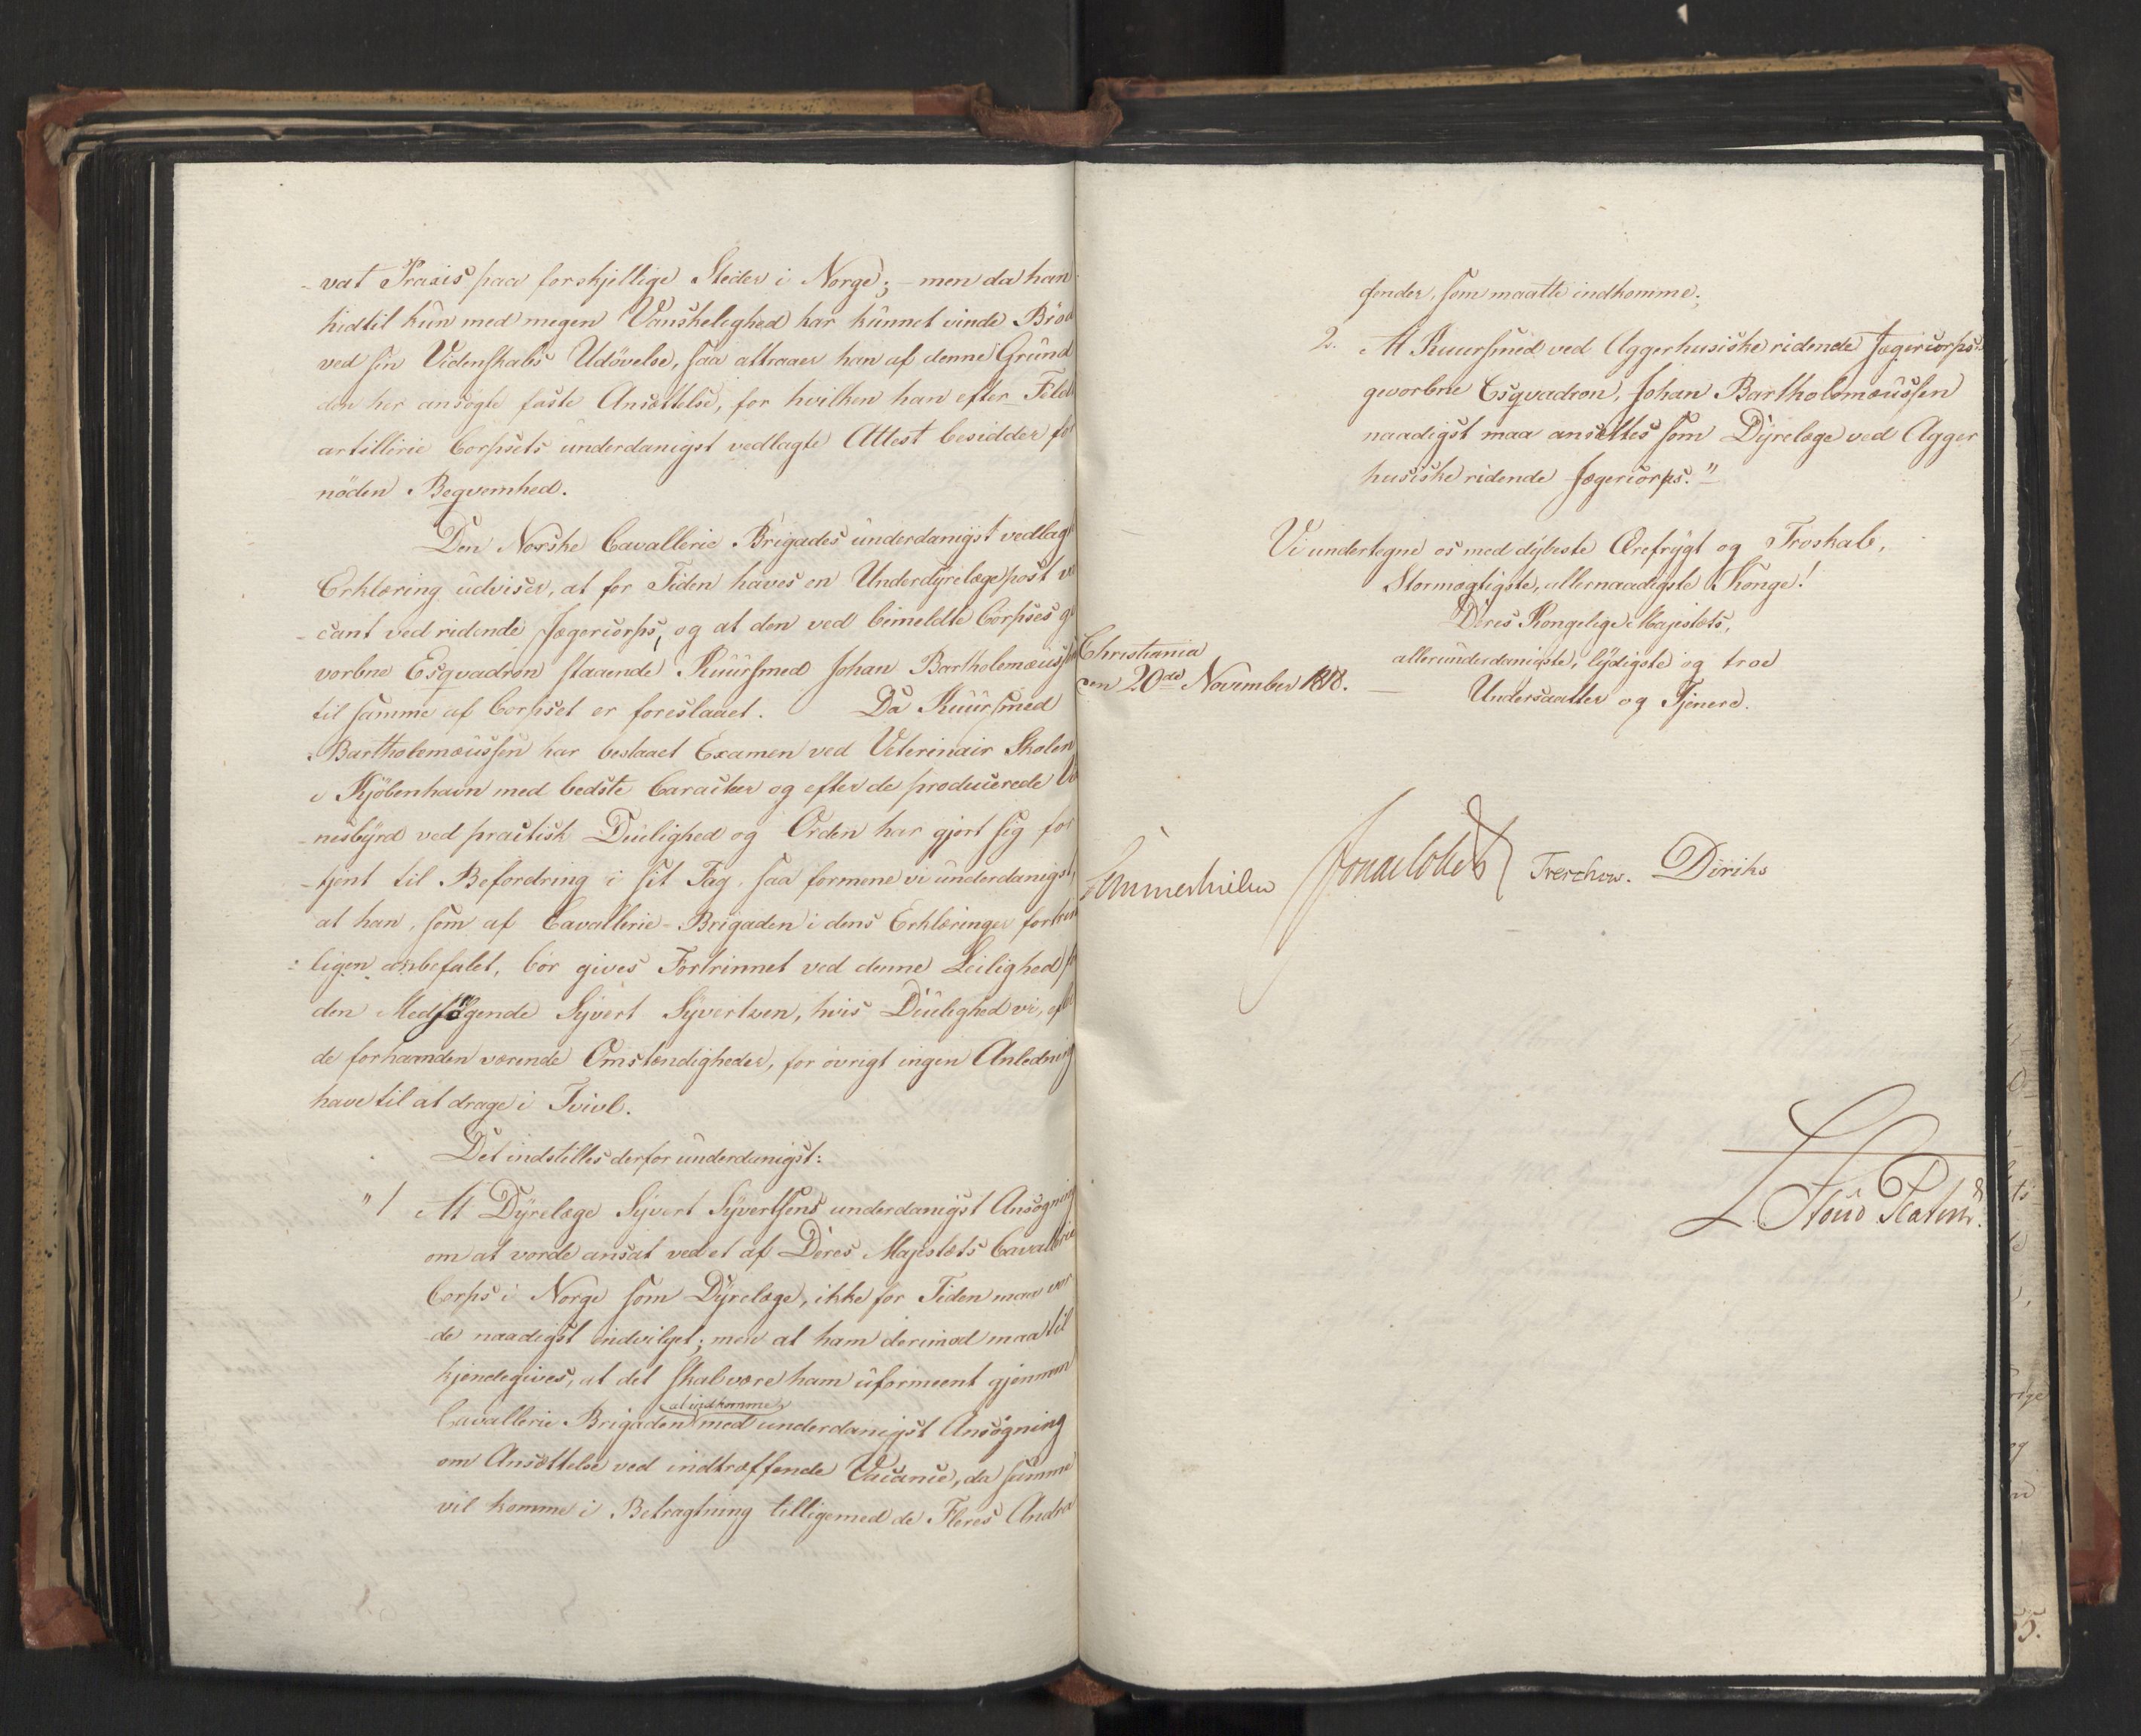 -vat Praxis paa forskjellige Steder i Norge; - men da han
hidtil kun med megen Vanskelighed har kunnet vinde Brød
ved sin Videnskabs Udövelse, saa attraaer han af denne Grund
den her ansögte faste Ansættelse, for hvilken han efter Feldt
artillerie Corpsets underdanigst vedlagte Attest besidder for
nöden Beqvemhed.
Den Norske Cavallerie Brigades underdanigst vedlagte
Erklæring udviser, at for Tiden haves en Underdyrelægepost va
-cant ved ridende Jægercorps, og at den ved bemeldte Corpses ge
vorbne Esqvadron staaende Kuursmed Johan Bartholomæussen
til samme af Corpset er foreslaaet. Da Kuursmed
Bartholomæussen har bestaaet Examen ved Veterinair Skolen
i Kjöbenhavn med bedste Caracteer og efter de producerede Vid
-nesbyrd ved practisk Duelighed og Orden har gjort sig for
-tjent til Befordring i sit Fag, saa formene vi underdanigst,
at han, som af Cavallerie-Brigaden i dens Erklæringer fortrin
-ligen anbefalet, bör gives Fortrinnet ved denne Leilighed for
den Medsögende Syvert Syvertsen, hvis Duelighed vi, efter
de forhaanden værende Omstændigheder, for övrigt ingen Anledning
have til at drage i Tvivl.
Det indstilles derfor underdanigst:
"1 At Dyrelæge Syvert Syvertsens underdanigst Ansögning
om at vorde ansat ved et af Deres Majestæts Cavallerie
Corps i Norge som Dyrelæge, ikke for Tiden maa vor
de naadigst indvilget; men at ham derimod maa til
kjendegives, at det skal være ham uformeent gjennem
Cavallerie Brigaden at indkomme med underdanigst Ansögning
om Ansættelse ved indtræffende Vacance, da samme
vil komme i Betragtning tilligemed de Fleres Andra
gender, som maatte indkomme.
2. At Kuursmed ved Aggerhusiske ridende Jægercorps's
gevorbne Esqvadron, Johan Bartholomæussen
naadigst maa ansættes som Dyrelæge ved Agger
husiske ridende Jægercorps."
Vi undertegne os med dybeste Ærefrygt og Troskab,
Stormægtigste, allernaadigste Konge!
Deres Kongelige Majestæts,
Christiania
den 20de November 1818.
allerunderdanigste, lydigste og troe
Undersaatter og Tjenere.
Sommerhielm Jonas Collett Treschow. Diriks
L. Stoud Platou.